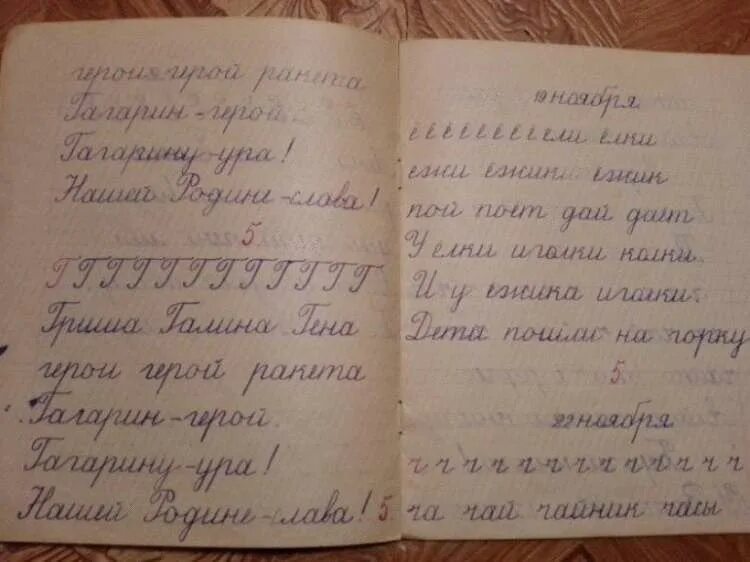 герои герой ракета
Гагарин-герой
Гагарину-ура!
Нашей Родине-слава!
5
ГГГГГГГГГГГГ
Гриша Галина Гена
герои герой ракета
Гагарин-герой.
Гагарину-ура!
Нашей Родине-слава! 5
19 ноября
ё ё ё ё ё ё ё ё ели ёлки
ежи ежики ёжик
пой поёт дай даёт
У ёлки иголки колки.
И у ёжика иголки.
Дета пошли на горку
5
22 ноября
ч ч ч ч ч ч ч ч ч ч ч ч ч
ча чай чайник часы